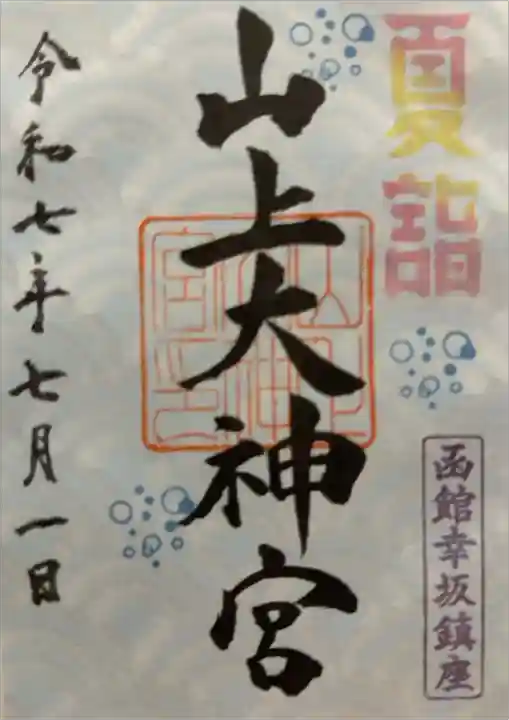 夏詣
函館幸坂鎮座
山上大神宮
令和七年七月一日